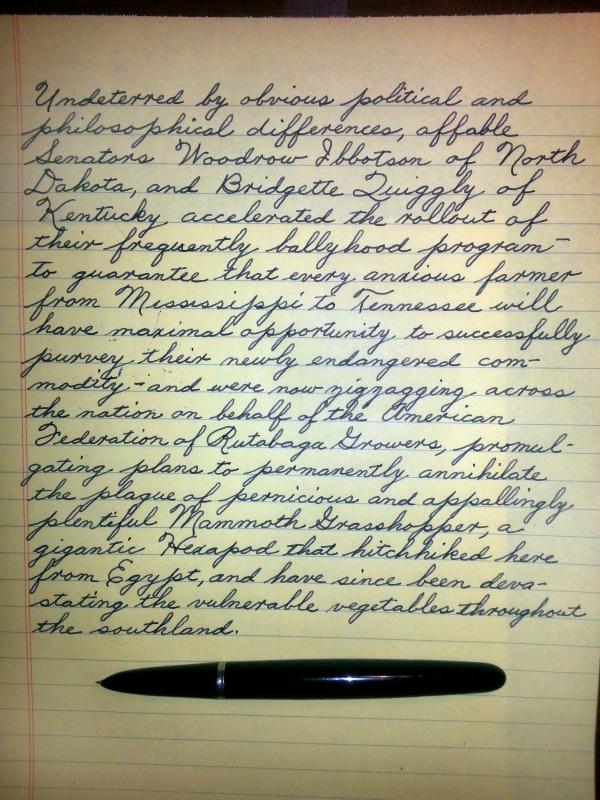 Undeterred by obvious political and
philosophical differences, affable
Senators Woodrow Ibbotson of North
Dakota, and Bridgette Quiggly of
Kentucky accelerated the rollout of
their frequently ballyhood program—
to guarantee that every anxious farmer
from Mississippi to Tennessee will
have maximal opportunity to successfully
purvey their newly endangered com-
modity - and were now zigzagging across
the nation on behalf of the American
Federation of Rutabaga Growers, promul-
gating plans to permanently annihilate
the plague of pernicious and appallingly
plentiful Mammoth Grasshopper, a
gigantic Hexapod that hitchhiked here
from Egypt, and have since been deva-
stating the vulnerable vegetables throughout
the southland.